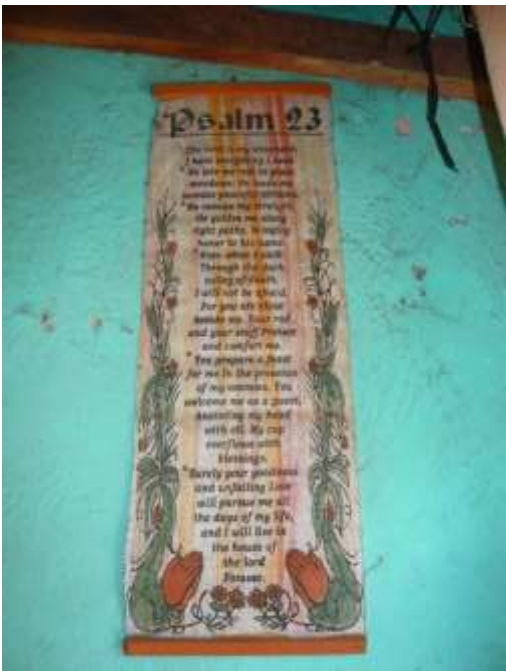 Psalm 23
The
I have everything I need
He lets me rest in green
meadows: He leads me
beside peaceful streams.
He renews my strength.
He guides me along
right paths, bringing
honor to his name.
Even when I walk
Through the dark
valley of death.
I will not be afraid.
For you are close
beside me. Your rod
and your staff Protect
and comfort me.
You prepare a feast
for me in the presence
of my enemies. You
welcome me as a guest,
Anointing my head
with oil. My cup
overflows with
blessings.
Surely your goodness
and unfailing Love
will pursue me all
the days of my life,
and I will live in
the house of
the lord
Forever.